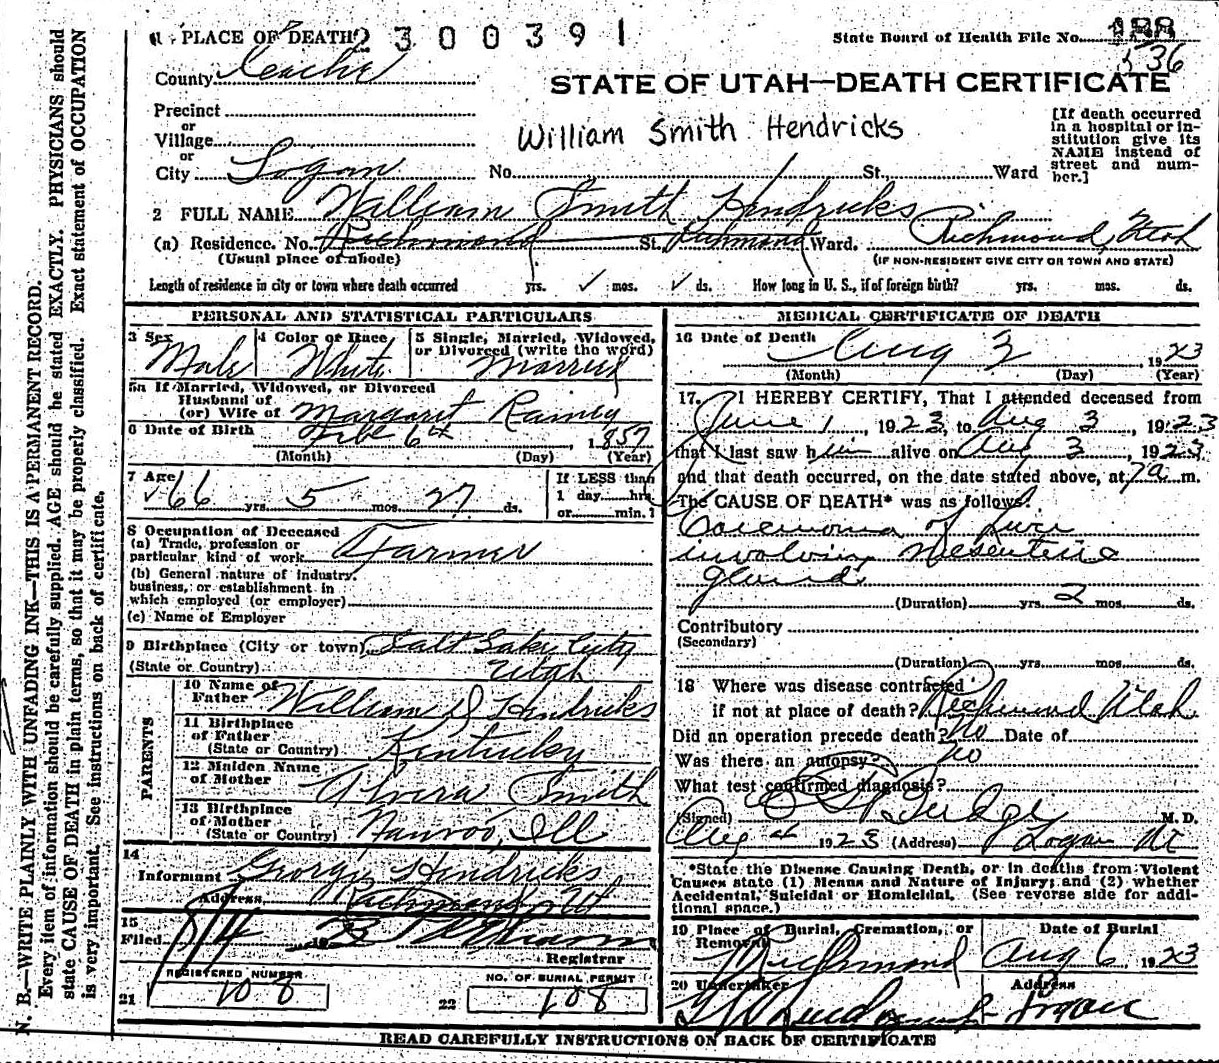 1 PLACE OF DEATH 2300391
State Board of Health File No. 188
536
County Cache
STATE OF UTAH—DEATH CERTIFICATE
Precinct
or
Village
or
City Logan No. St., Ward
William Smith Hendricks
[If death occurred
in a hospital or in-
stitution give its
NAME instead of
street and num-
ber.]
2 FULL NAME William Smith Hendricks
(a) Residence. No. Richmond St. Richmond Ward. Richmond, Utah
(Usual place of abode) (IF NON-RESIDENT GIVE CITY OR TOWN AND STATE)
Length of residence in city or town where death occurred yrs. ✓ mos. ✓ ds. How long in U. S., if of foreign birth? yrs. mos. ds.
PERSONAL AND STATISTICAL PARTICULARS
3 Sex 4 Color or Race 5 Single, Married, Widowed,
or Divorced (write the word)
Male White Married
5a If Married, Widowed, or Divorced
Husband of
(or) Wife of Margaret Rainey
6 Date of Birth Feb 6th, 1857
(Month) (Day) (Year)
7 Age If LESS than
1 day hrs.
or min.
✓ 66 yrs. 5 mos. 27 ds.
8 Occupation of Deceased
(a) Trade, profession or
particular kind of work Farmer
(b) General nature of industry,
business, or establishment in
which employed (or employer)
(c) Name of Employer
9 Birthplace (City or town) Salt Lake City
(State or Country) Utah
PARENTS
10 Name of
Father William D Hendricks
11 Birthplace
of Father
(State or Country) Kentucky
12 Maiden Name
of Mother Alvira Smith
13 Birthplace
of Mother
(State or Country) Nauvoo, Ill
14
Informant George Hendricks
Address Richmond, Ut
15
Filed 8/4 1923
Registrar
REGISTERED NUMBER NO. OF BURIAL PERMIT
21 108 22 108
MEDICAL CERTIFICATE OF DEATH
16 Date of Death
Aug 3 1923
(Month) (Day) (Year)
17. I HEREBY CERTIFY, That I attended deceased from
June 1, 1923, to Aug 3, 1923
that I last saw him alive on Aug 3, 1923
and that death occurred, on the date stated above, at 7 a m.
The CAUSE OF DEATH* was as follows:
of
involving
glands
(Duration) yrs. 2 mos. ds.
Contributory
(Secondary)
(Duration) yrs. mos. ds.
18 Where was disease contracted
if not at place of death? Richmond Utah
Did an operation precede death? No Date of
Was there an autopsy? No
What test confirmed diagnosis?
(Signed) Budge M. D.
Aug 4 1923 (Address) Logan Ut
*State the Disease Causing Death, or in deaths from Violent
Causes state (1) Means and Nature of Injury; and (2) whether
Accidental, Suicidal or Homicidal. (See reverse side for addi-
tional space.)
19 Place of Burial, Cremation, or
Removal Date of Burial
Richmond Aug 6 1923
20 Undertaker Address
Logan
READ CAREFULLY INSTRUCTIONS ON BACK OF CERTIFICATE
N. B.—WRITE PLAINLY WITH UNFADING INK—THIS IS A PERMANENT RECORD.
Every item of information should be carefully supplied. AGE should be stated EXACTLY. PHYSICIANS should
state CAUSE OF DEATH in plain terms, so that it may be properly classified. Exact statement of OCCUPATION
is very important. See instructions on back of certificate.